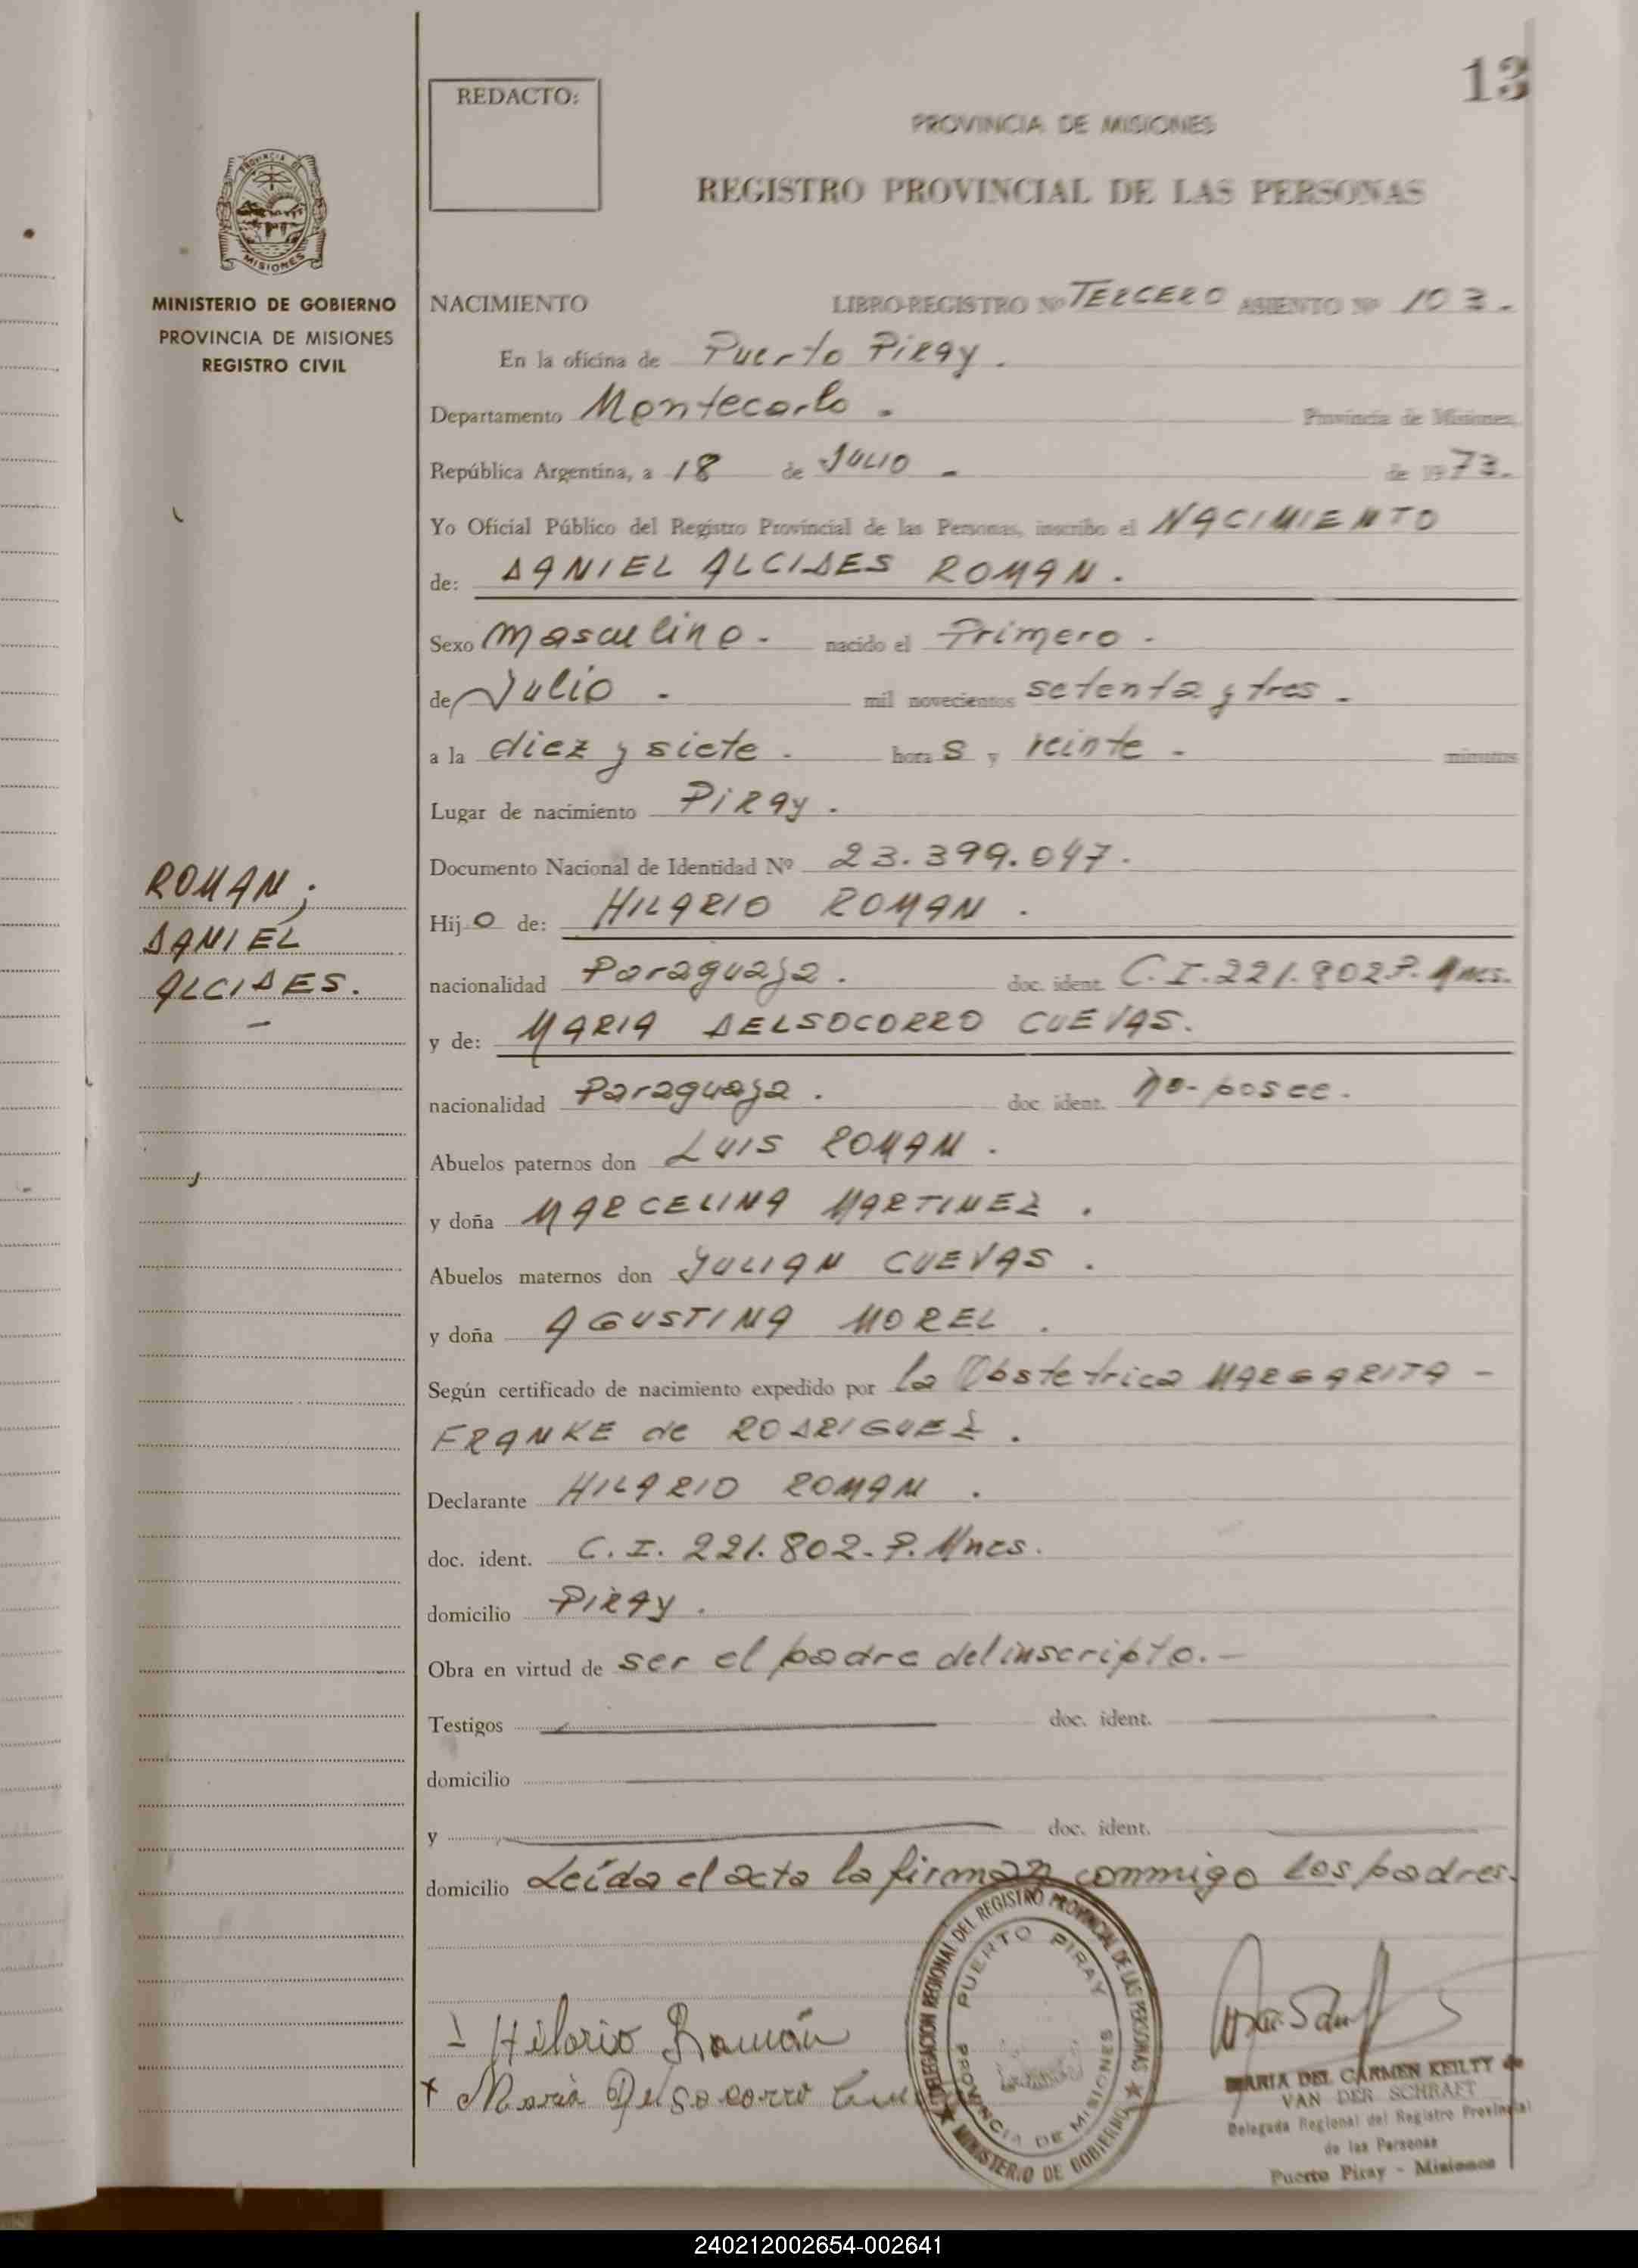 13
REDACTO:
PROVINCIA DE MISIONES
REGISTRO PROVINCIAL DE LAS PERSONAS
PROVINCIA DE
MISIONES
MINISTERIO DE GOBIERNO
PROVINCIA DE MISIONES
REGISTRO CIVIL
NACIMIENTO LIBRO-REGISTRO Nº TERCERO ASIENTO Nº 103.-
En la oficina de Puerto Piray.
Departamento Montecarlo. Provincia de Misiones,
República Argentina, a 18 de JULIO - de 1973.-
Yo Oficial Público del Registro Provincial de las Personas, inscribo el NACIMIENTO
de: DANIEL ALCIDES ROMAN.
Sexo Masculino. nacido el Primero.
de Julio. mil novecientos setenta y tres.
a la diez y siete. horas y veinte - minutos
Lugar de nacimiento Piray.
Documento Nacional de Identidad Nº 23.399.047.
Hijo de: HILARIO ROMAN.
nacionalidad Paraguaya. doc. ident. C.I.221.802 P. Mnes.
y de: MARIA DELSOCORRO CUEVAS.
nacionalidad Paraguaya. doc ident. no-posee.
Abuelos paternos don LUIS ROMAN.
y doña MARCELINA MARTINEZ.
Abuelos maternos don JULIAN CUEVAS.
y doña AGUSTINA MOREL.
Según certificado de nacimiento expedido por la Obstetrica MARGARITA -
FRANKE de RODRIGUEZ.
Declarante HILARIO ROMAN.
doc. ident. C.I. 221.802-P. Mnes.
domicilio Piray.
Obra en virtud de ser el padre delinscripto.-
Testigos doc. ident.
domicilio
y doc. ident.
domicilio Leída el acta la firman commigo los padres.
ROMAN;
DANIEL
ALCIDES.
Hilario Román
Maria Delsocorro
DELEGACION REGIONAL DEL REGISTRO PROVINCIAL DE LAS PERSONAS
MINISTERIO DE GOBIERNO
PUERTO PIRAY
PROVINCIA DE MISIONES
MARIA DEL CARMEN KEILTY de
VAN DER SCHRAFT
Delegada Regional del Registro Provincial
de las Personas
Puerto Piray - Misiones
240212002654-002641